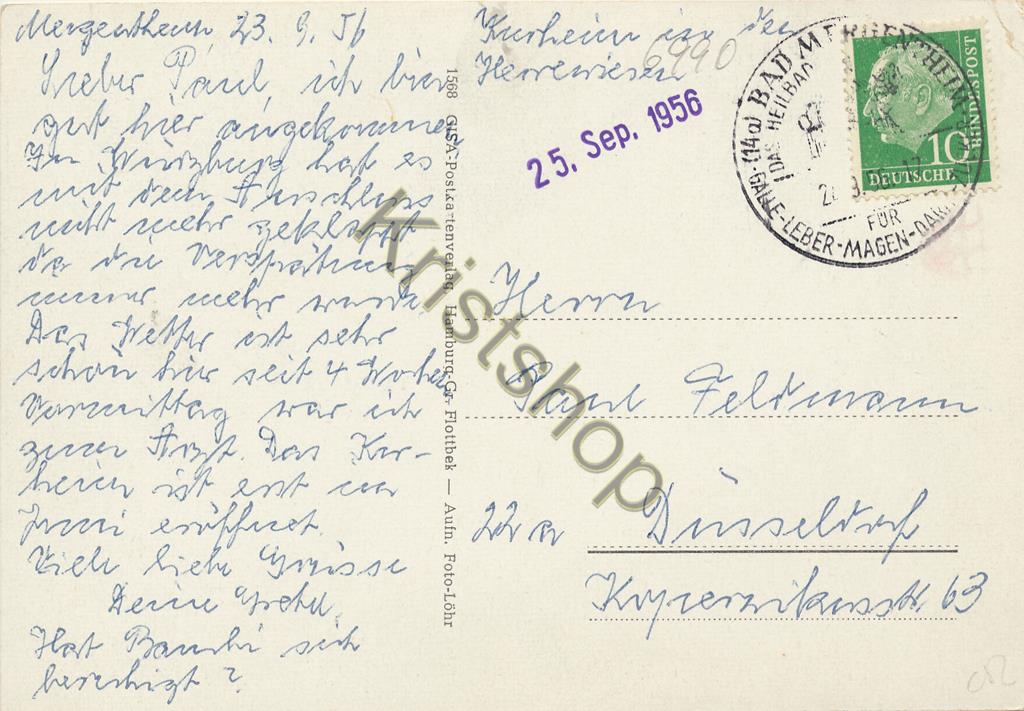 Mergentheim, 23. 9. 56
Lieber Paul, ich bin
gut hier angekommen
In Würzburg hat es
mit dem Anschluss
nicht mehr geklappt
da die Verspätung
immer mehr wurde.
Das Wetter ist sehr
schön hier seit 4 Wochen
Vormittag war ich
zum Arzt. Das Kur-
heim ist erst im
Juni eröffnet.
Viele liebe Grüsse
Deine Gretel.
Hat Bambi sich
beruhigt?
Kurheim in den
Herrewiesen
6990
25. Sep. 1956
(14a) BAD MERGENTHEIM
DAS HEILBAD
FÜR
GALLE-LEBER-MAGEN-DARM
10
DEUTSCHE
BUNDESPOST
1568 GISA-Postkartenverlag, Hamburg-Gr. Flottbek — Aufn. Foto-Löhr
Kristshop
Herrn
Paul Feldmann
22a Düsseldorf
Kopernikusstr. 63